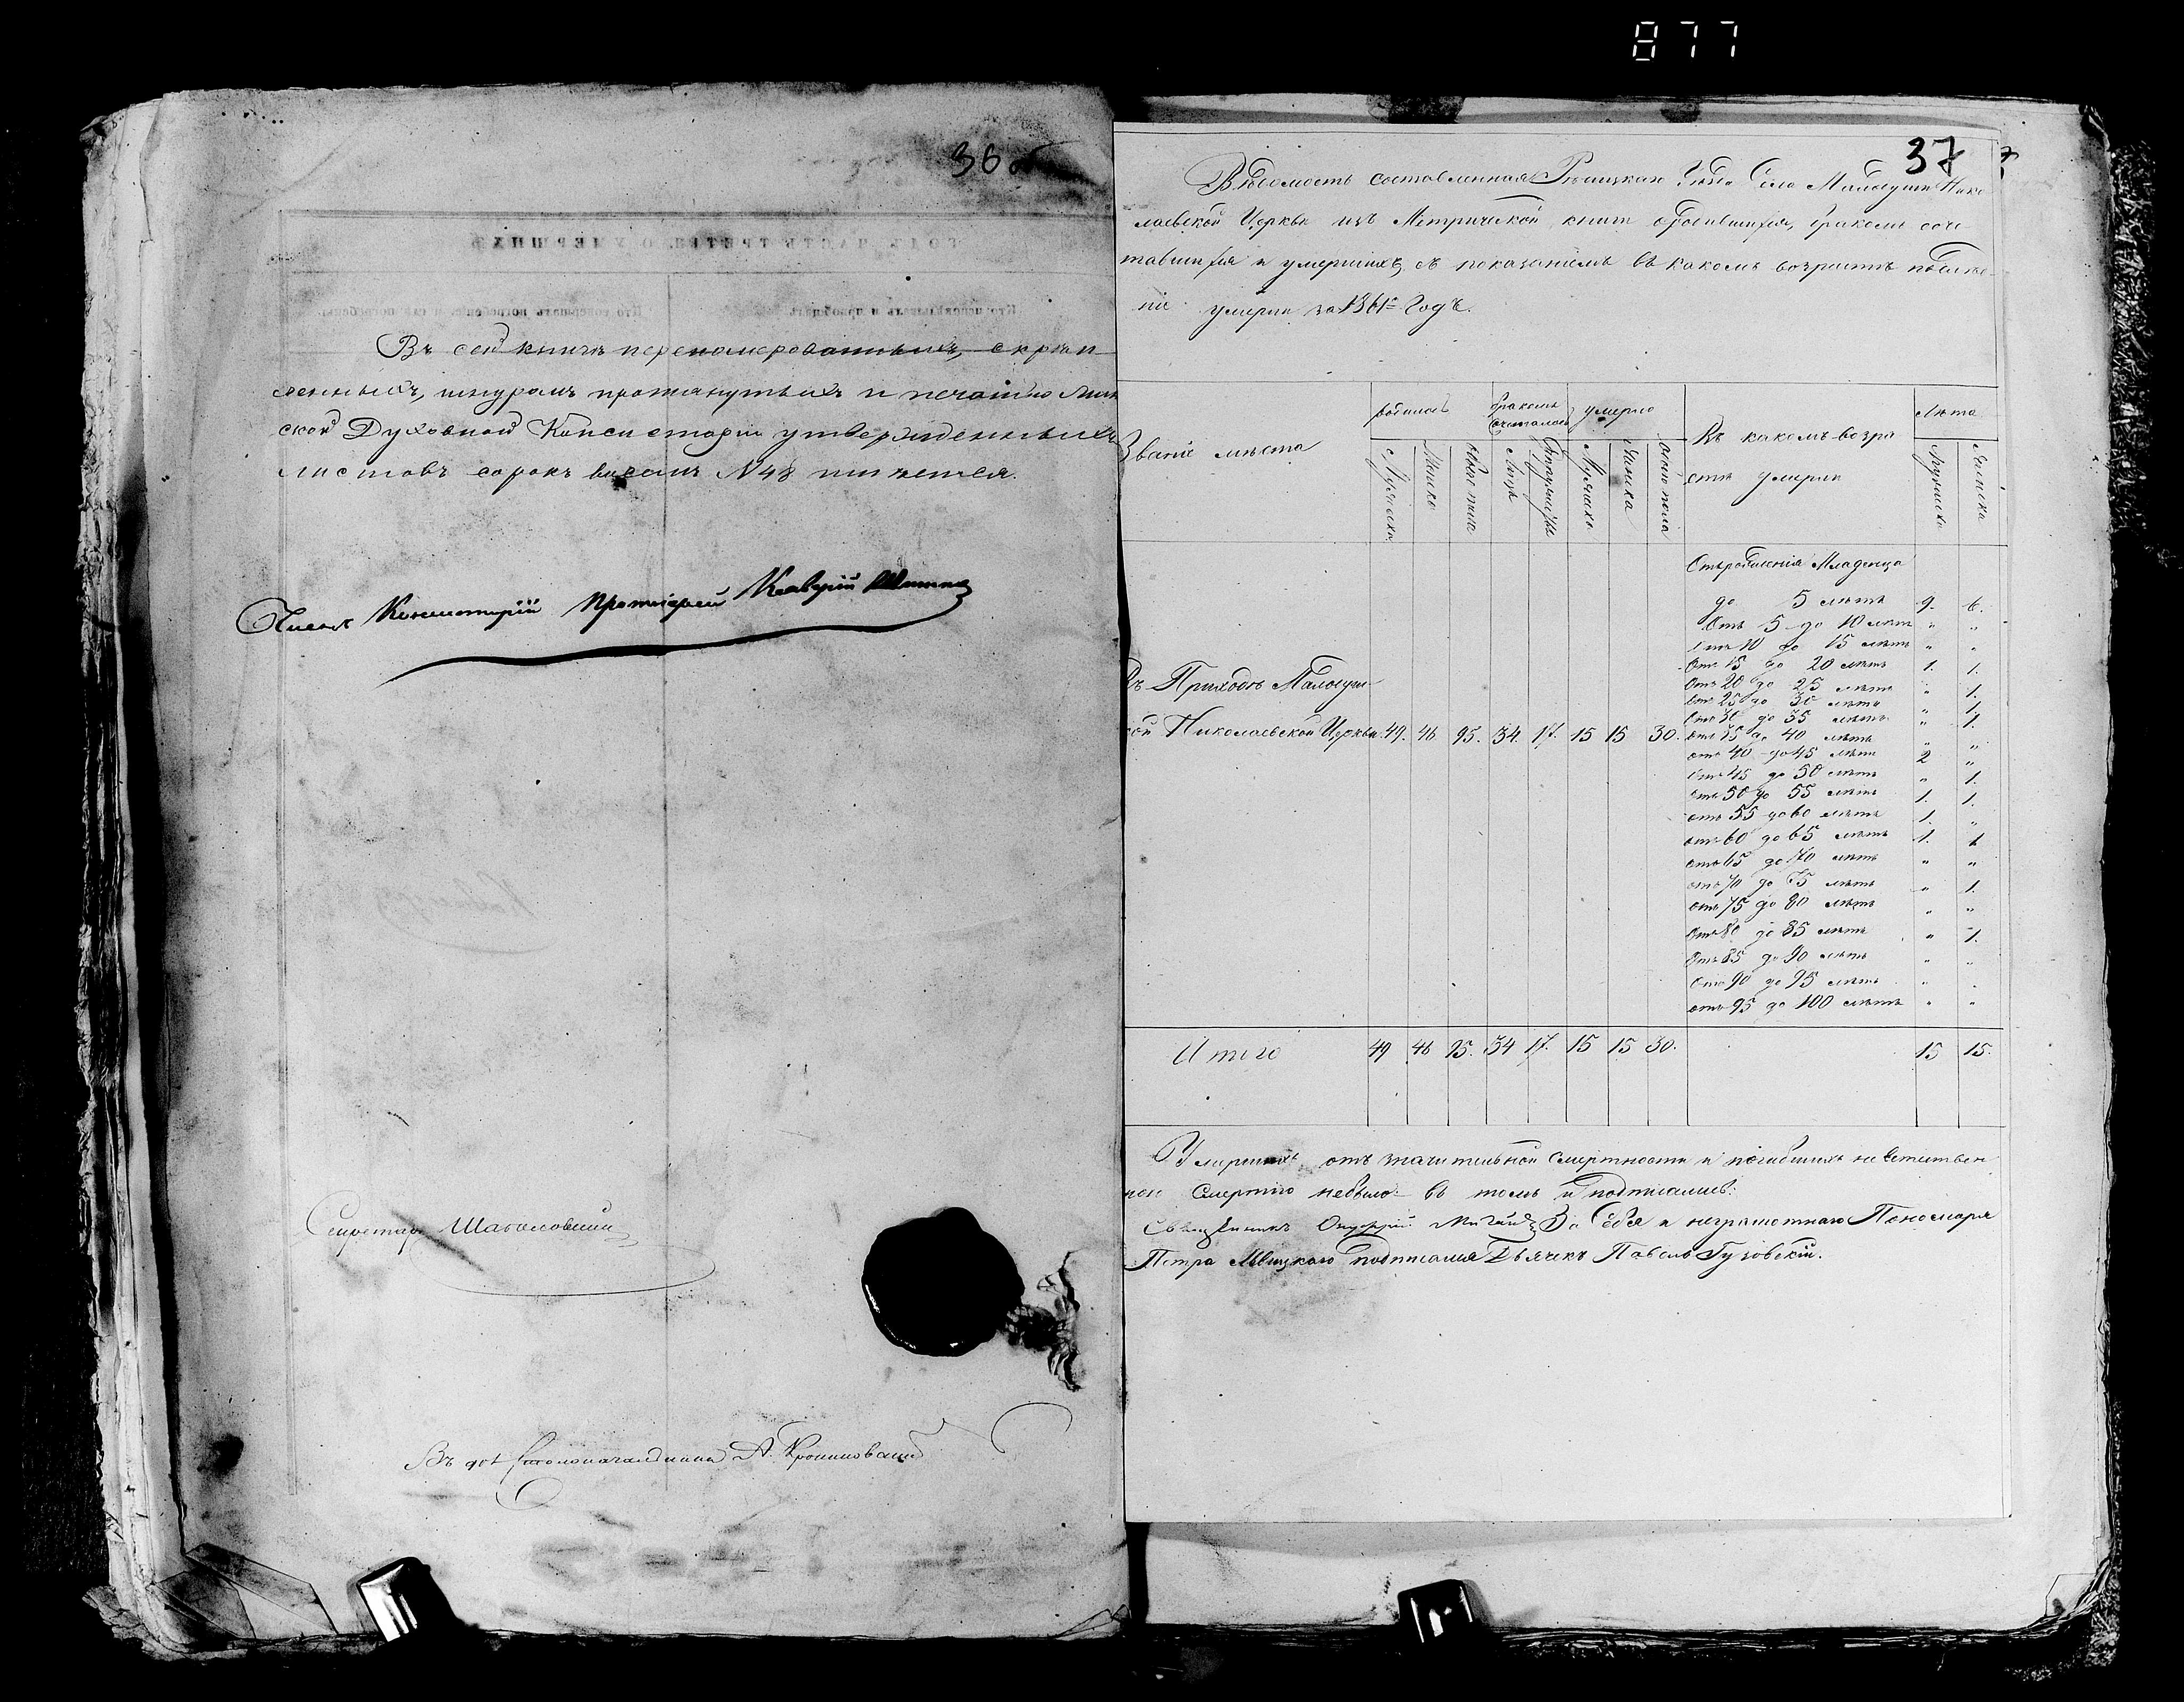 877
36 об
Въ сей книгѣ перенумерованныхъ, скрѣп
ленныхъ, шнуромъ протянутыхъ и печатью Мин
ской Духовной Консисторіи утвержденныхъ
листовъ сорокъ восемь N 48 имѣется.
Членъ Консисторіи Протоіерей
Секретарь
Въ дол. Столоначальника А.
37
Вѣдомость составленная Рѣчицкаго Уѣзда Села Малодуши Нико
лаевской Церкви изъ Метрической книги о родившихся, бракомъ соче
тавшихся и умершихъ, съ показаніемъ въ какомъ возрастѣ
умерли за 1861й Годъ.
Званіе мѣста
родилось
бракомъ сочеталось
умерло
Въ какомъ возра
стѣ умерли
Лѣта
Мужеска
Женска
обоего пола
Лицъ
Мужеска
Женска
обоего пола
Мужеска
Женска
Отъ рожденія Младенца
до 5 лѣтъ 9. 6.
Отъ 5 до 10 лѣтъ " "
Отъ 10 до 15 лѣтъ " "
Отъ 15 до 20 лѣтъ 1. 1.
Отъ 20 до 25 лѣтъ " 1.
Отъ 25 до 30 лѣтъ " 1.
Отъ 30 до 35 лѣтъ " 1.
Въ Приходѣ Малодуш
кой Николаевской Церкви. 49. 46 95. 34. 17. 15 15 30.
отъ 35 до 40 лѣтъ " "
отъ 40 до 45 лѣтъ 2 "
отъ 45 до 50 лѣтъ " 1.
отъ 50 до 55 лѣтъ 1. 1.
отъ 55 до 60 лѣтъ 1. "
отъ 60 до 65 лѣтъ 1. 1
отъ 65 до 70 лѣтъ " "
отъ 70 до 75 лѣтъ " 1.
отъ 75 до 80 лѣтъ " "
Отъ 80 до 85 лѣтъ " 1.
Отъ 85 до 90 лѣтъ " "
Отъ 90 до 95 лѣтъ "
отъ 95 до 100 лѣтъ " "
Итого 49 46 95. 34 17. 15 15 30. 15 15.
Умершихъ отъ значительной смертности и погибшихъ неестествен
ною Смертію небыло въ томъ и подписались:
Священникъ За Себя и неграмотнаго Пономаря
Петра подписался Дьячекъ Павелъ Гузовскій.